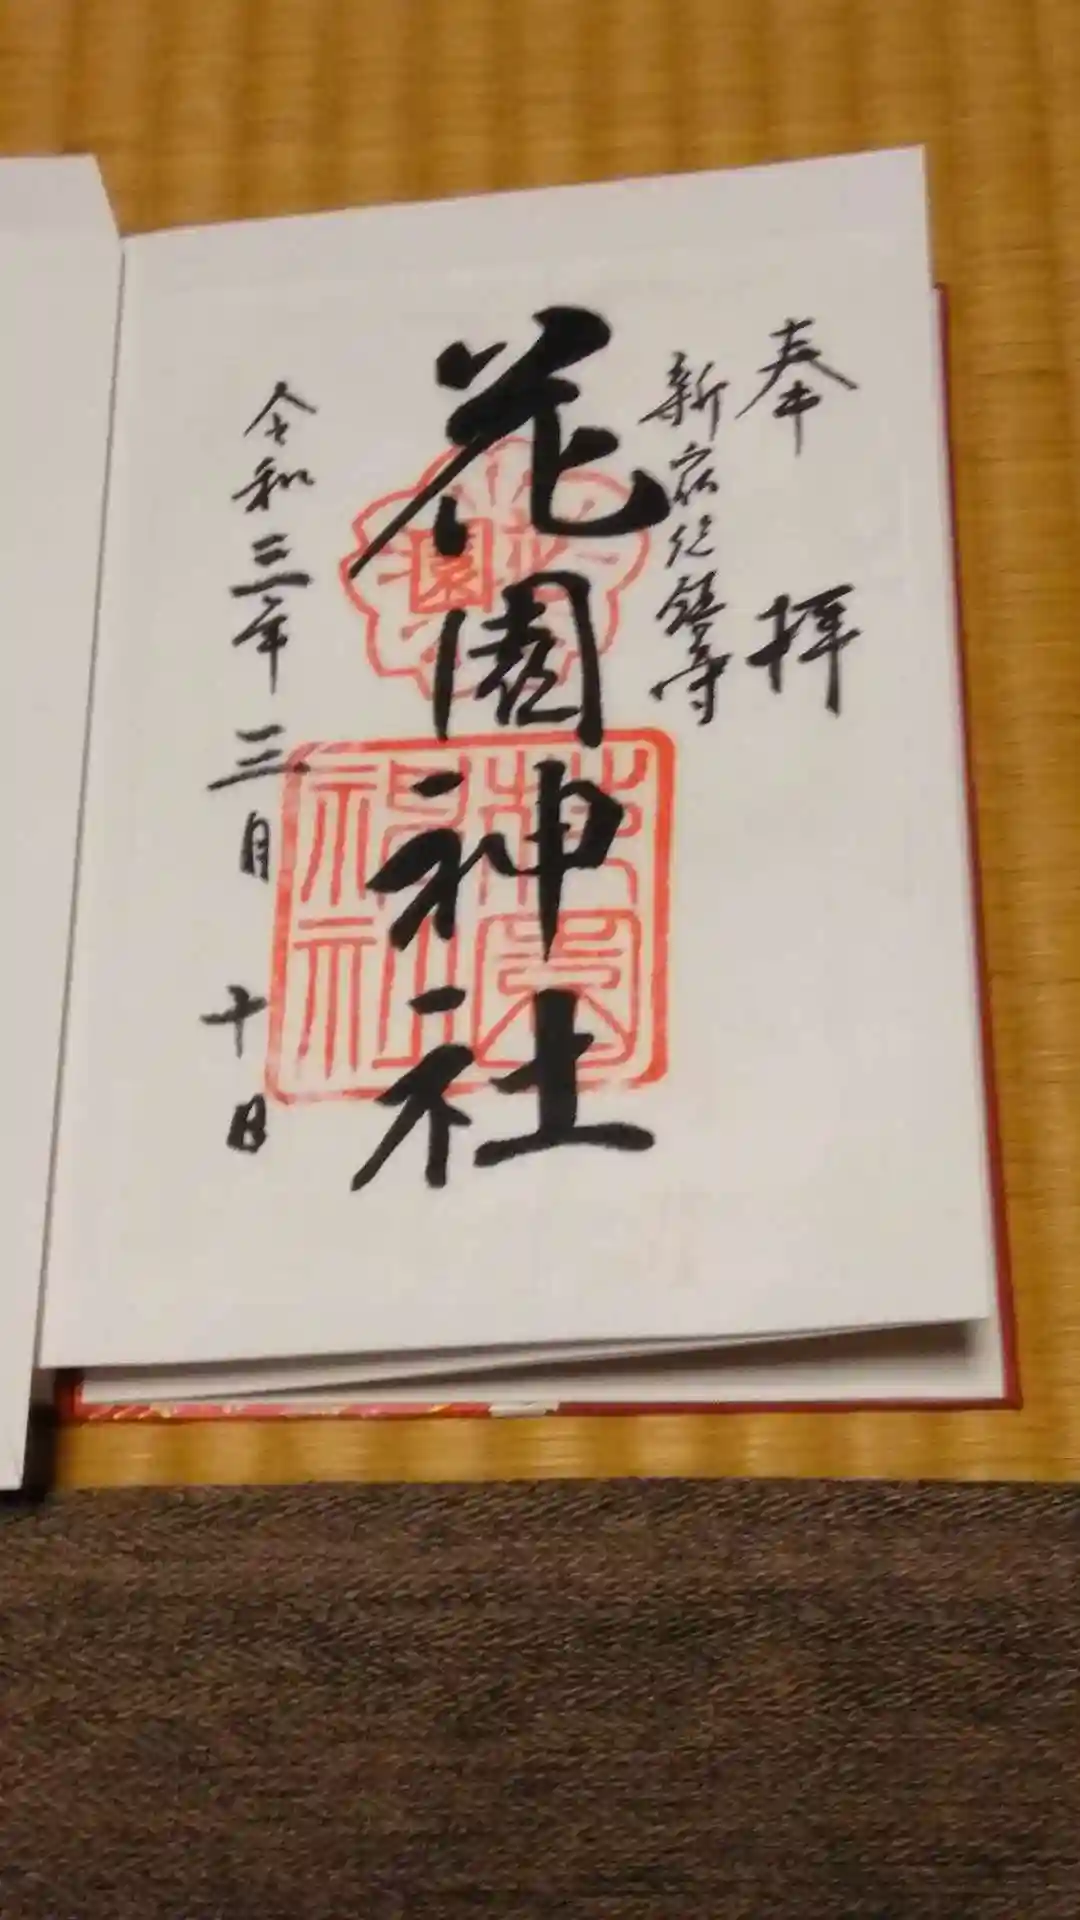 奉拝
新宿総鎮守
花園神社
令和三年三月十日
花園
花園神社